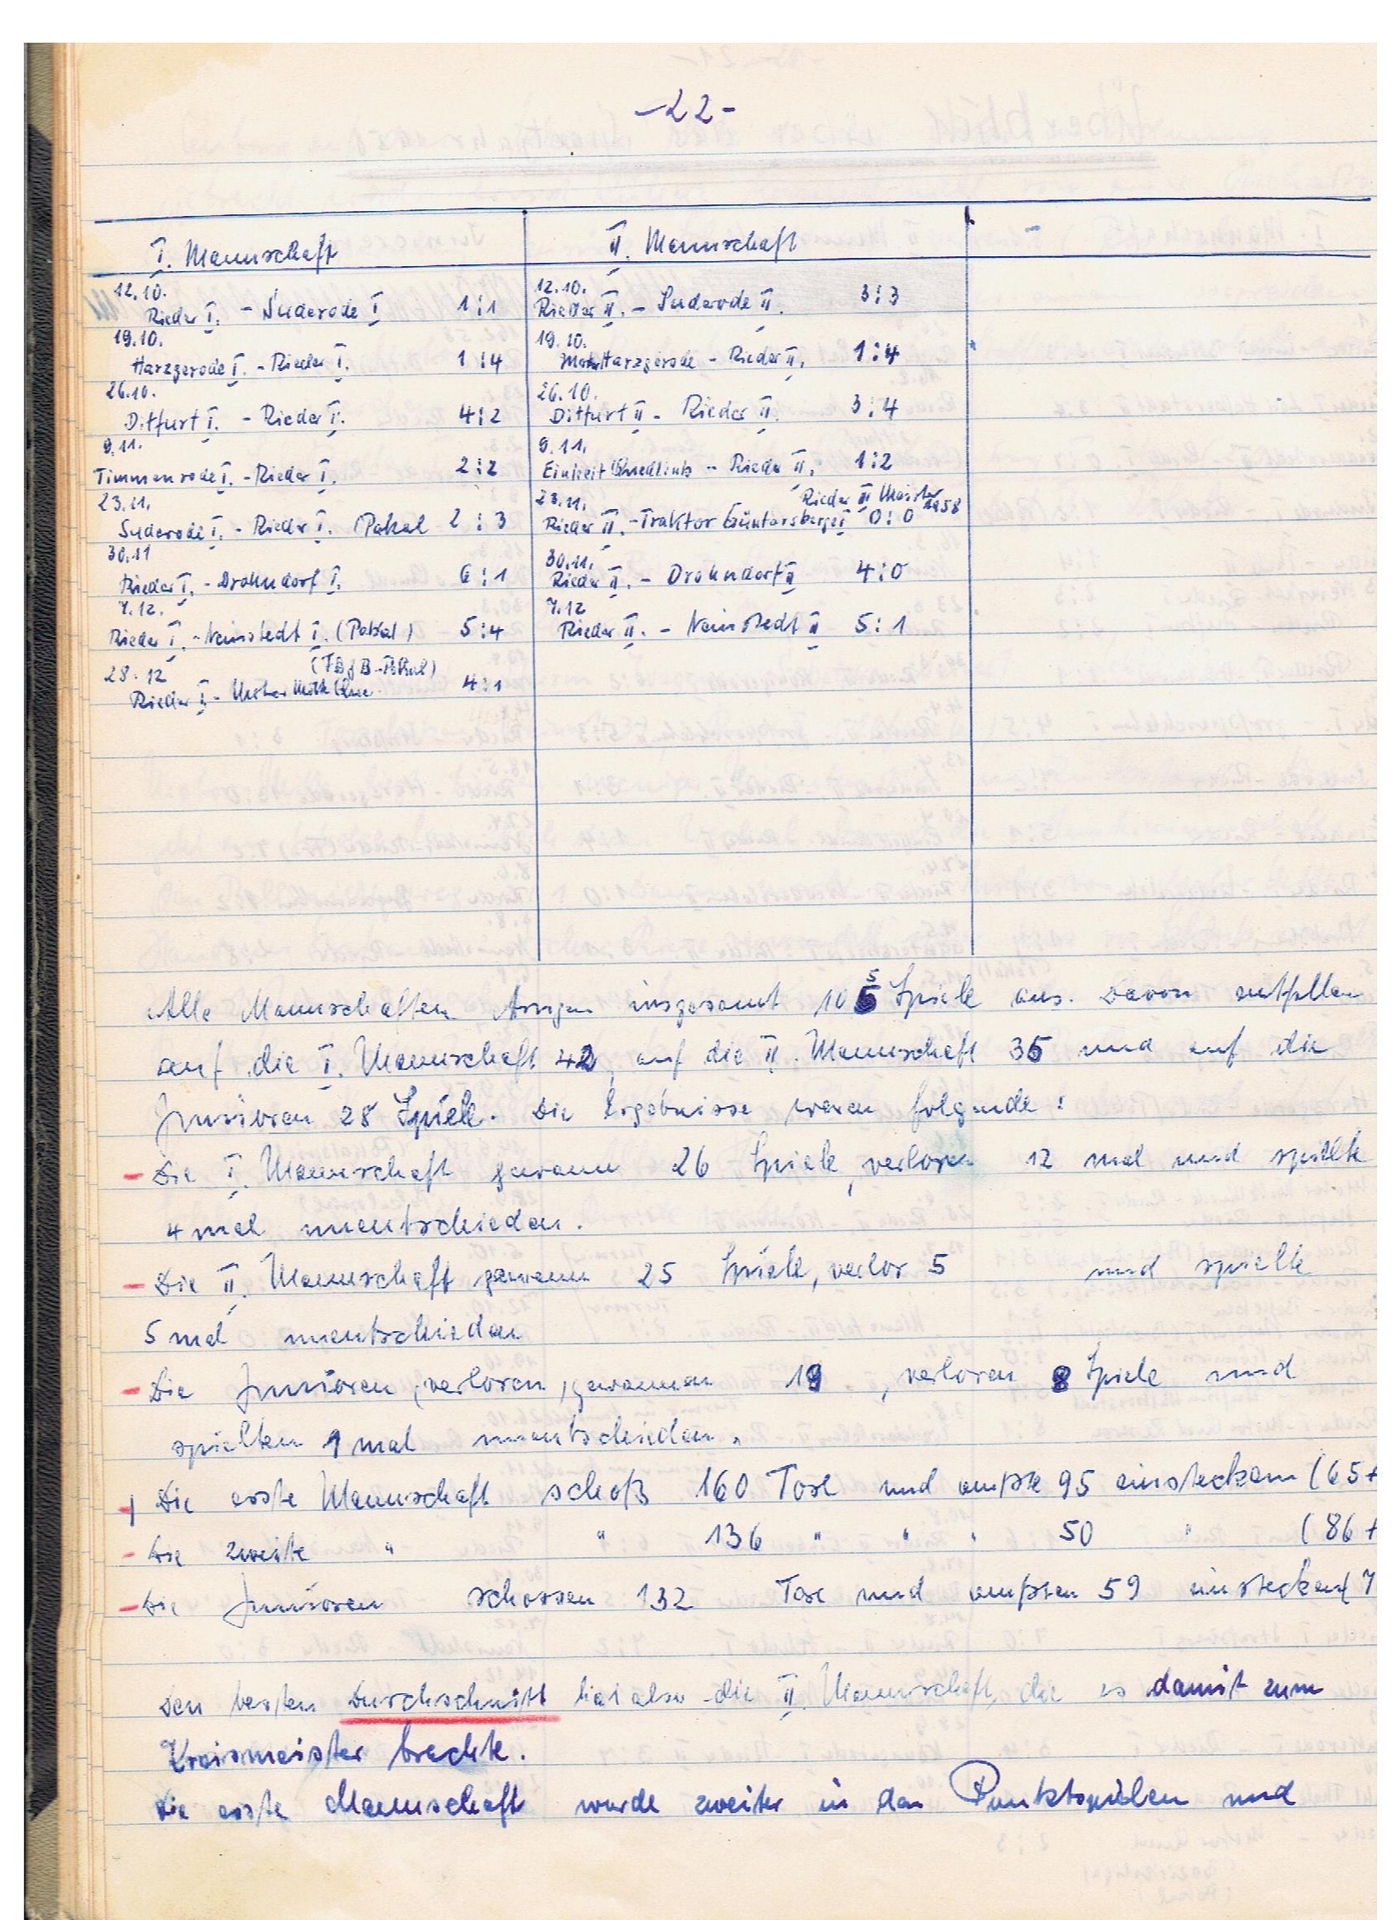 -22-
I. Mannschaft
12.10.
Rieder I. - Suderode I 1:1
19.10.
Harzgerode I. - Rieder I. 1:4
26.10.
Ditfurt I. - Rieder I. 4:2
9.11.
Timmenrode I. - Rieder I. 2:2
23.11.
Suderode I. - Rieder I. Pokal 2:3
30.11
Rieder I. - Drohndorf I. 6:1
7.12.
Rieder I. - Neinstedt I. (Pokal) 5:4
28.12
Rieder I. - 4:1
II. Mannschaft
12.10.
Rieder II. - Suderode II. 3:3
19.10.
Harzgerode - Rieder II. 1:4
26.10.
Ditfurt II - Rieder II. 3:4
9.11.
Einheit Quedlinb - Rieder II. 1:2
23.11. Rieder II Meister 1958
Rieder II. - Traktor Güntersberge I 0:0
30.11.
Rieder II. - Drohndorf II 4:0
7.12
Rieder II. - Neinstedt II 5:1
Alle Mannschaften trugen insgesamt 105 Spiele aus. Davon entfallen
auf die I. Mannschaft 42, auf die II. Mannschaft 35 und auf die
Junioren 28 Spiele. Die Ergebnisse waren folgende:
- Die I. Mannschaft gewann 26 Spiele, verloren 12 mal und spielte
4 mal unentschieden.
- Die II. Mannschaft gewann 25 Spiele, verlor 5 und spielte
5 mal unentschieden
- Die Junioren, verloren, gewannen 19, verloren 8 Spiele und
spielten 1 mal unentschieden.
- Die erste Mannschaft schoß 160 Tore und mußte 95 einstecken (65+
- Die zweite " " 136 " " " 50 " (86+
- Die Junioren schossen 132 Tore und mußten 59 einstecken (7
Den besten Durchschnitt hat also die II. Mannschaft, die es damit zum
Kreismeister brachte.
Die erste Mannschaft wurde zweiter in den Punktspielen und